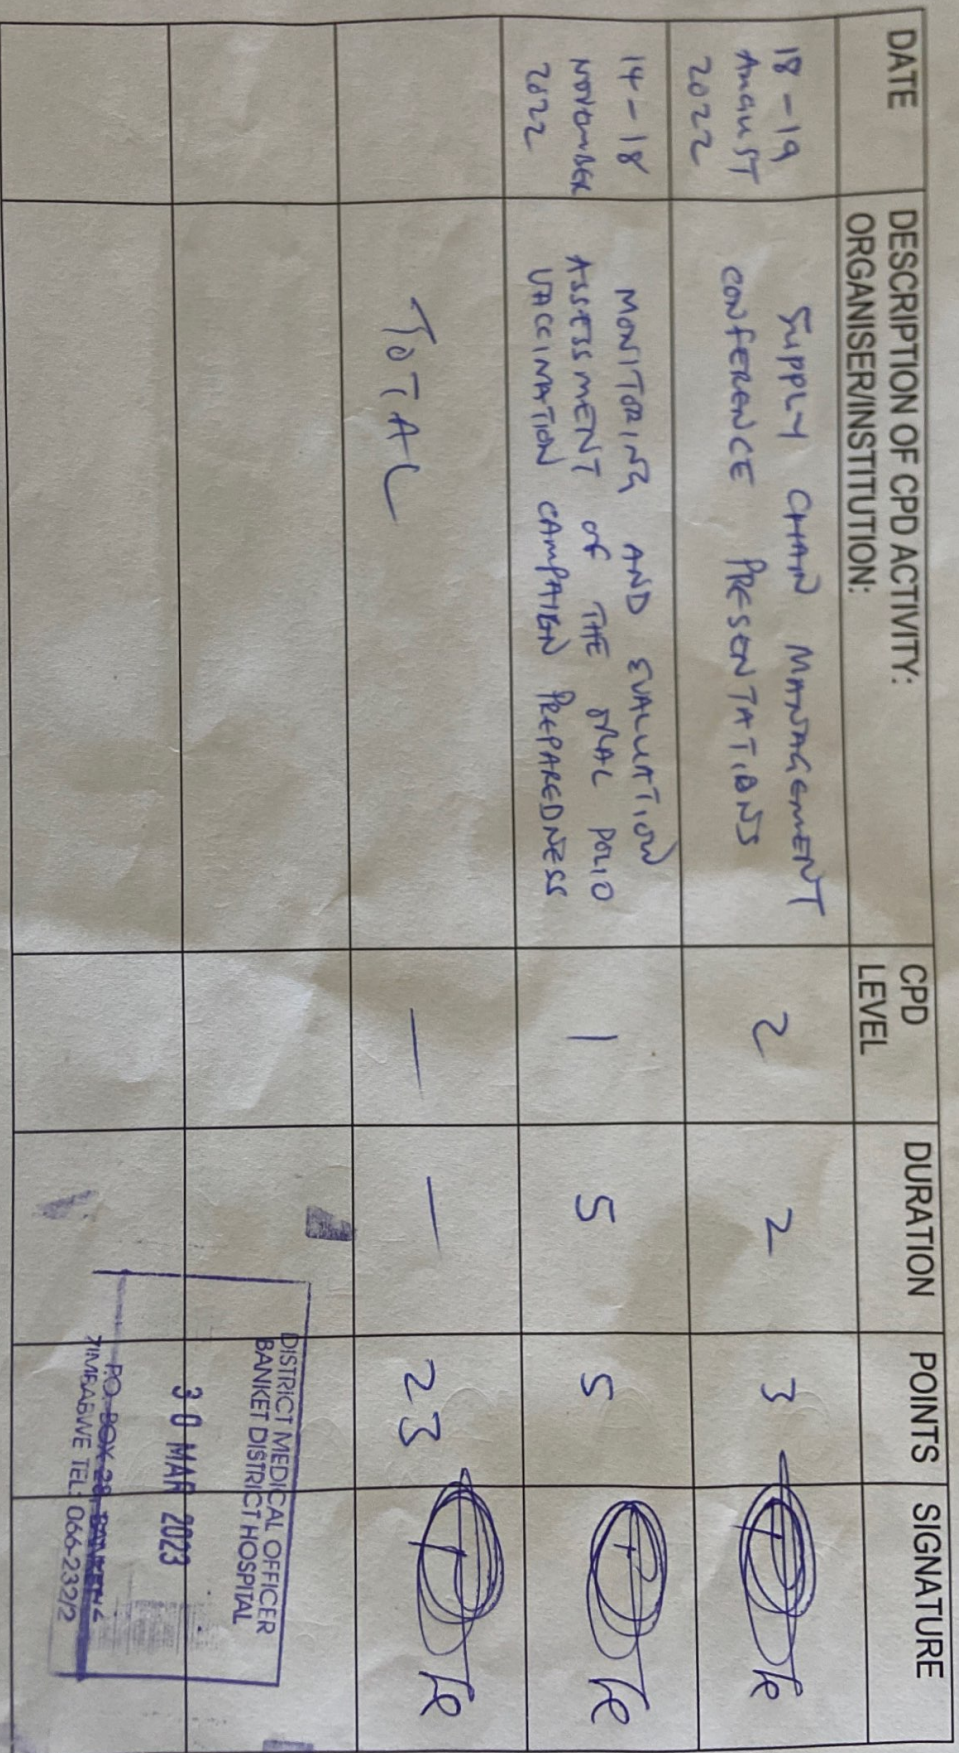 DATE
DESCRIPTION OF CPD ACTIVITY:
ORGANISER/INSTITUTION:
CPD
LEVEL
DURATION
POINTS
SIGNATURE
18-19
August
2022
SUPPLY CHAIN MANAGEMENT
CONFERENCE PRESENTATIONS
2
2
3
14-18
NOVEMBER
2022
MONITORING AND EVALUATION
ASSESSMENT OF THE ORAL POLIO
VACCINATION CAMPAIGN PREPAREDNESS
1
5
5
TOTAL
—
—
23
DISTRICT MEDICAL OFFICER
BANKET DISTRICT HOSPITAL
30 MAR 2023
P.O. BOX 28,
ZIMBABWE TEL: 066-2322